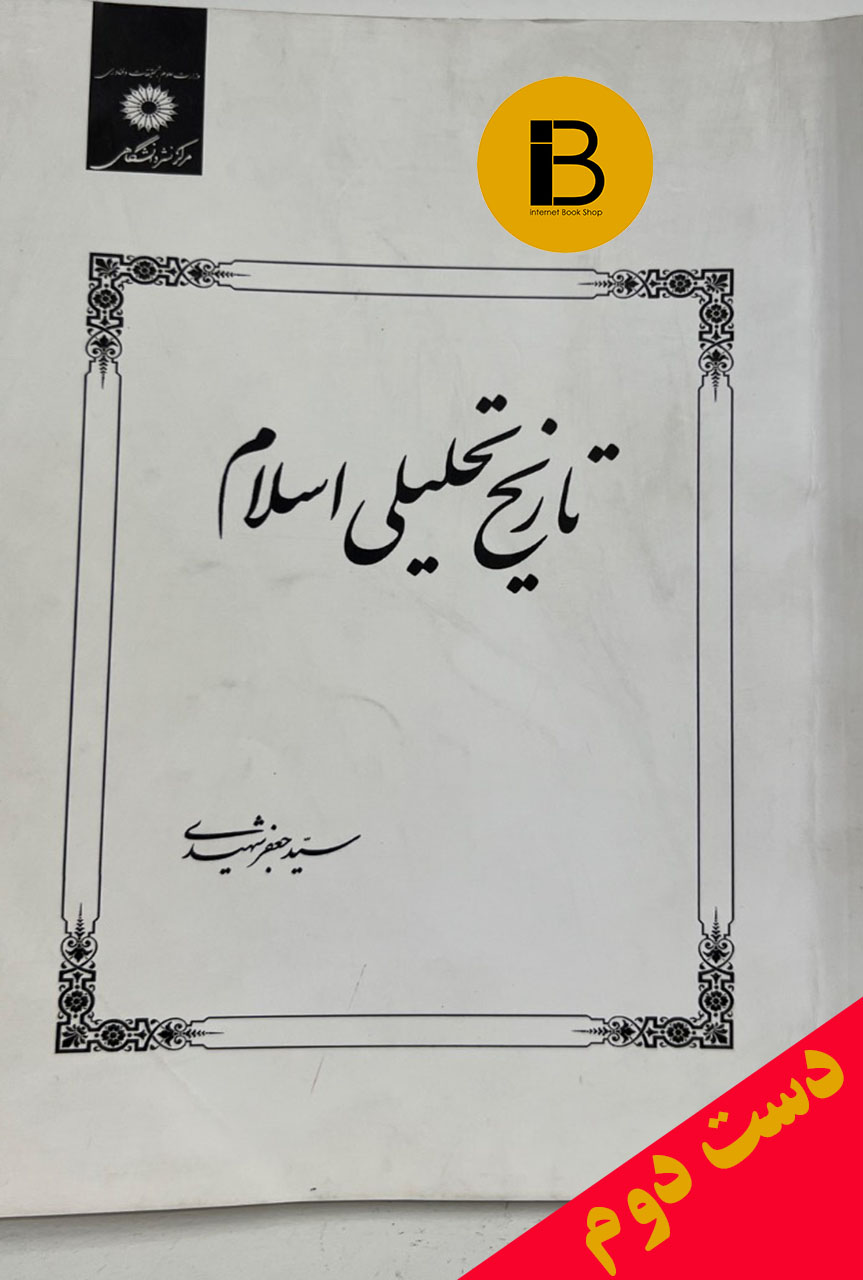 وزارت علوم، تحقیقات و فناوری
مرکز نشر دانشگاهی
iB
internet Book Shop
تاریخ تحلیلی اسلام
سیّد جعفر شهیدی
دست دوم